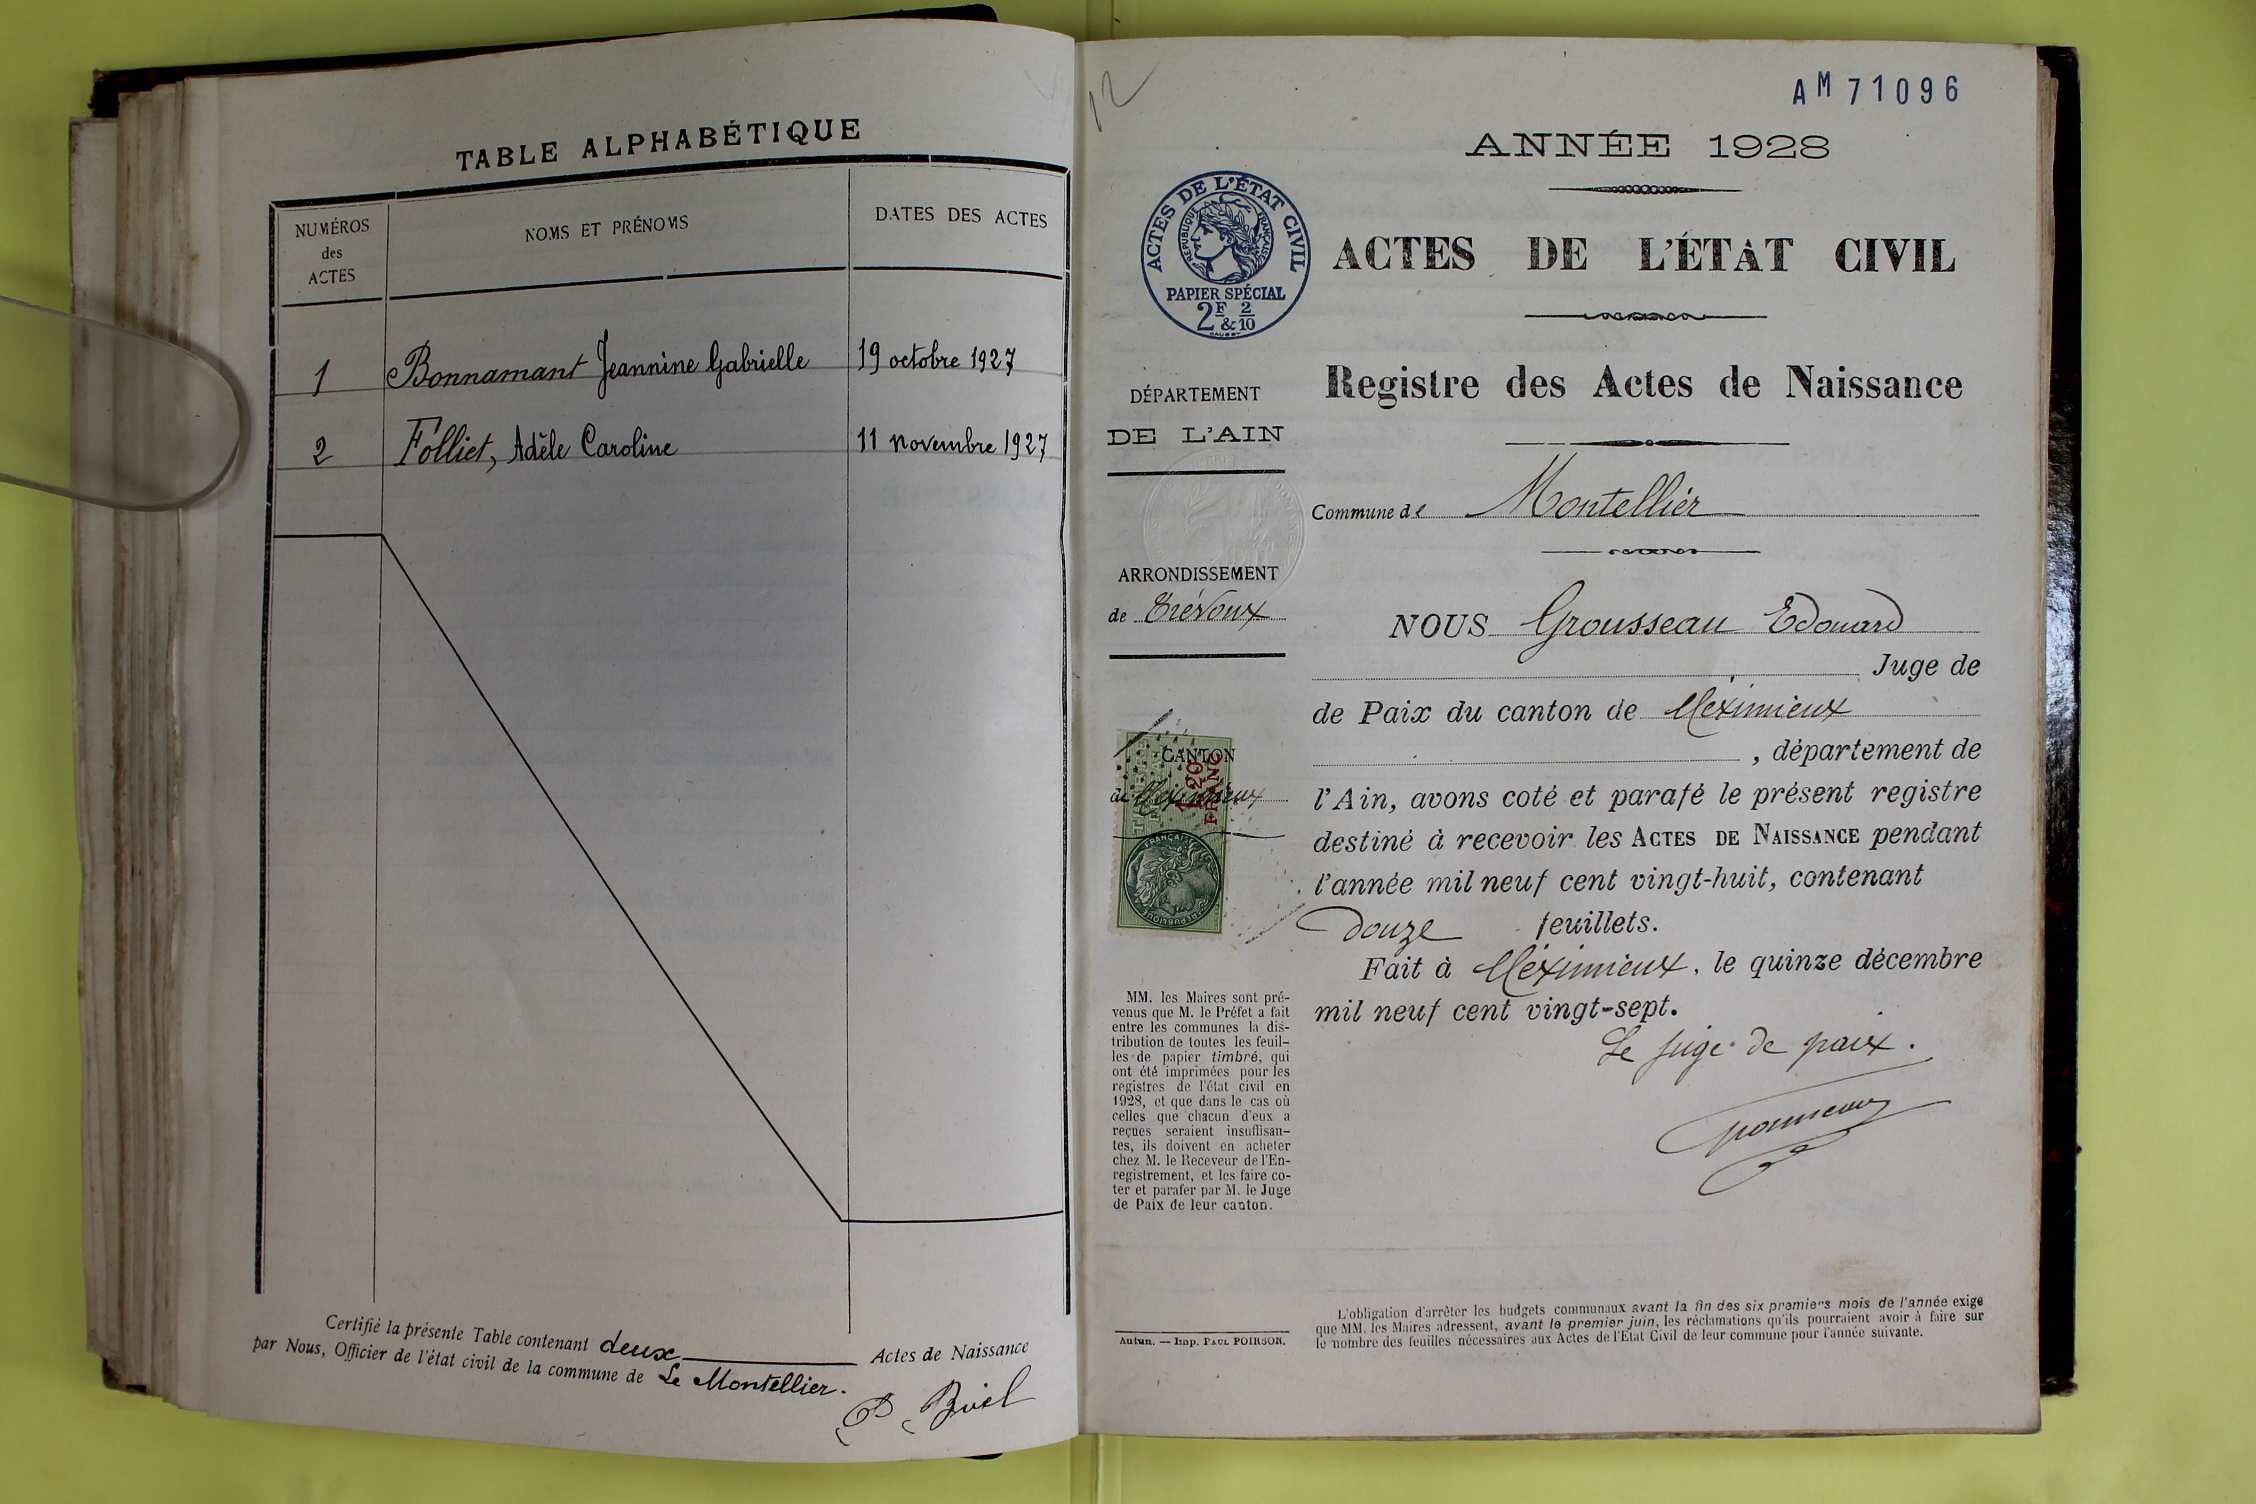 TABLE ALPHABÉTIQUE
NUMÉROS
des
ACTES
NOMS ET PRÉNOMS
DATES DES ACTES
1 Bonnamant Jeannine Gabrielle 19 octobre 1927
2 Folliet, Adèle Caroline 11 novembre 1927
Certifié la présente Table contenant deux Actes de Naissance
par Nous, Officier de l'état civil de la commune de Le Montellier.
12
AM 71096
ANNÉE 1928
ACTES DE L'ÉTAT CIVIL
RÉPUBLIQUE FRANÇAISE
PAPIER SPÉCIAL
2F & 2/10
ACTES DE L'ÉTAT CIVIL
Registre des Actes de Naissance
DÉPARTEMENT
DE L'AIN
Commune de Montellier
ARRONDISSEMENT
de Trévoux
CANTON
de Méximieux
1.20
FRANC
NOUS Grousseau Edouard
Juge de
de Paix du canton de Méximieux
, département de
l'Ain, avons coté et parafé le présent registre
destiné à recevoir les ACTES DE NAISSANCE pendant
l'année mil neuf cent vingt-huit, contenant
Douze feuillets.
Fait à Méximieux, le quinze décembre
mil neuf cent vingt-sept.
Le juge de paix.
MM. les Maires sont pré-
venus que M. le Préfet a fait
entre les communes la dis-
tribution de toutes les feuil-
les de papier timbré, qui
ont été imprimées pour les
registres de l'état civil en
1928, et que dans le cas où
celles que chacun d'eux a
reçues seraient insuffisan-
tes, ils doivent en acheter
chez M. le Receveur de l'En-
registrement, et les faire co-
ter et parafer par M. le Juge
de Paix de leur canton.
Autun. — Imp. PAUL POIRSON.
L'obligation d'arrêter les budgets communaux avant la fin des six premiers mois de l'année exige
que MM. les Maires adressent, avant le premier juin, les réclamations qu'ils pourraient avoir à faire sur
le nombre des feuilles nécessaires aux Actes de l'État Civil de leur commune pour l'année suivante.